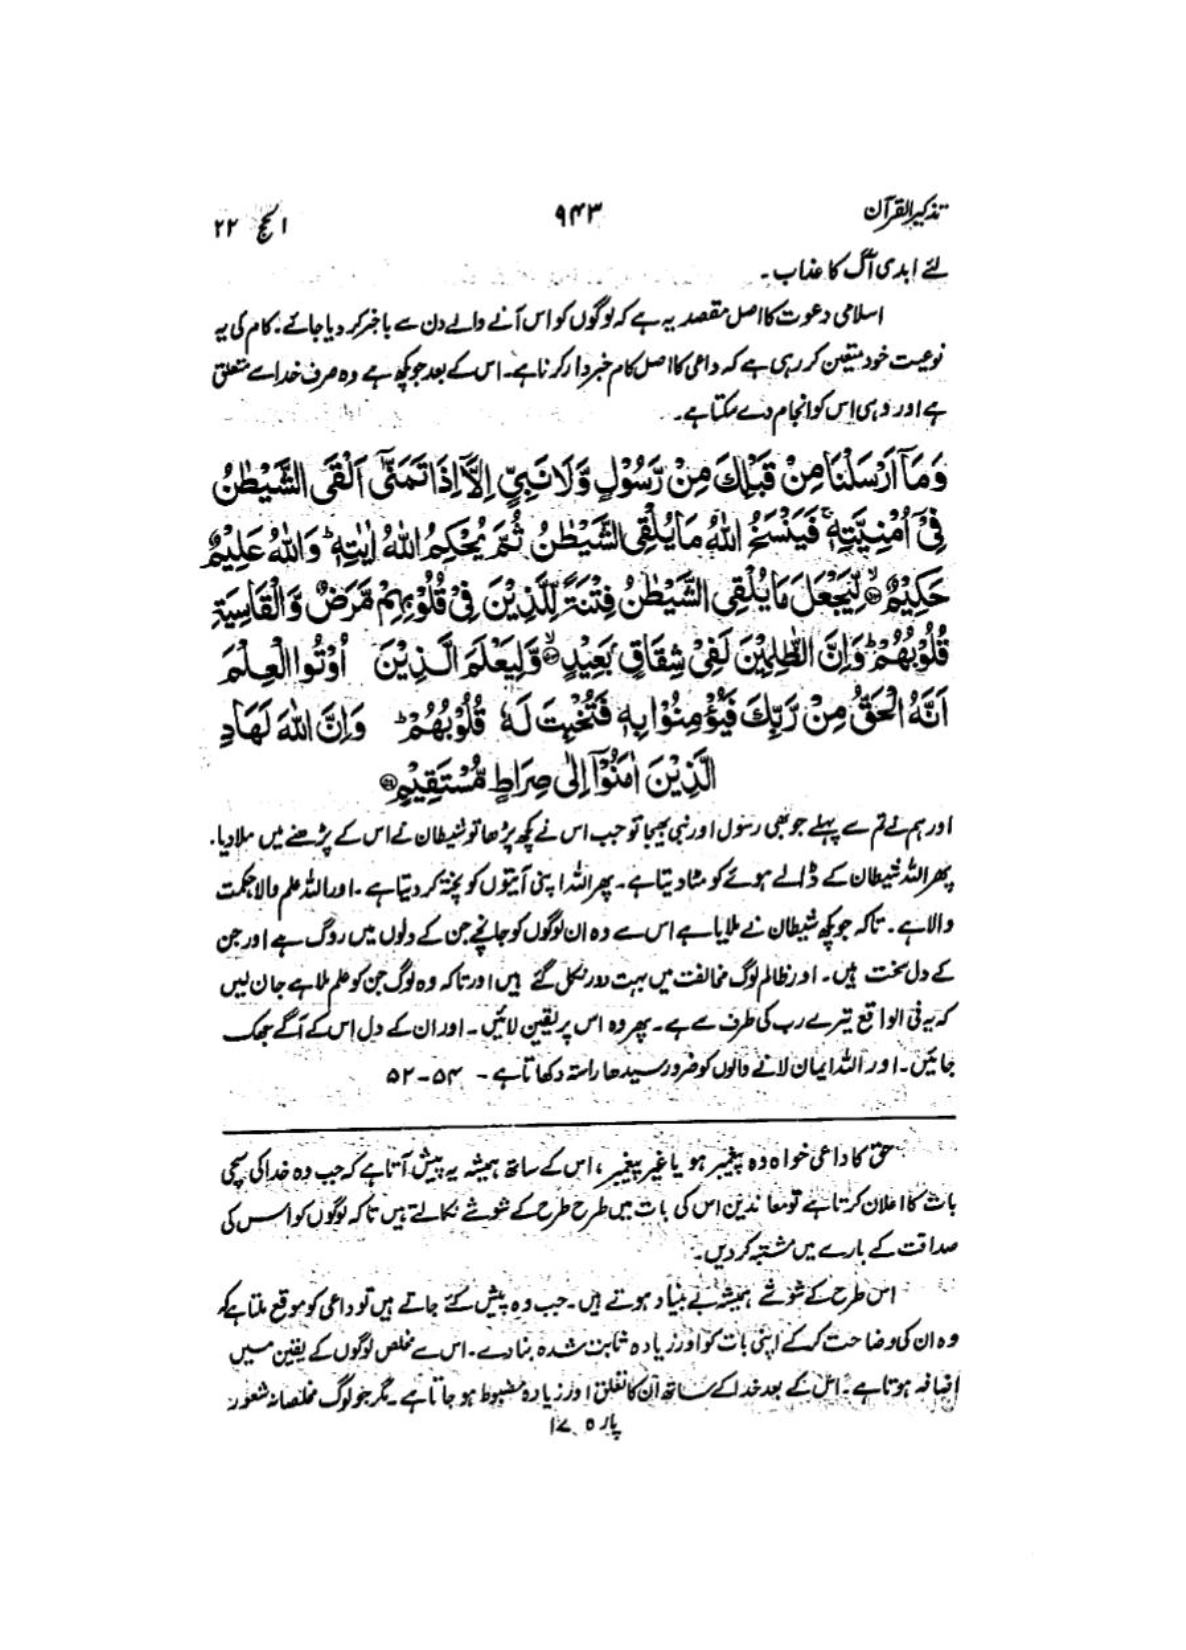 تذکیر القرآن ۹۴۳ الحج ۲۲
لئے ابدی آگ کا عذاب۔
اسلامی دعوت کا اصل مقصد یہ ہے کہ لوگوں کو اس آنے والے دن سے باخبر کر دیا جائے۔ کام کی یہ
نوعیت خود متعین کر رہی ہے کہ داعی کا اصل کام خبردار کرنا ہے۔ اس کے بعد جو کچھ ہے وہ صرف خدا سے متعلق
ہے اور وہی اس کو انجام دے سکتا ہے۔
وَمَآ اَرْسَلْنَا مِنْ قَبْلِكَ مِنْ رَّسُوْلٍ وَّلَا نَبِيٍّ اِلَّآ اِذَا تَمَنّٰٓى اَلْقَى الشَّيْطٰنُ
فِيْٓ اُمْنِيَّتِهٖ ۚ فَيَنْسَخُ اللّٰهُ مَا يُلْقِى الشَّيْطٰنُ ثُمَّ يُحْكِمُ اللّٰهُ اٰيٰتِهٖ ؕ وَاللّٰهُ عَلِيْمٌ
حَكِيْمٌ ۙ﴿۵۲﴾ لِّيَجْعَلَ مَا يُلْقِى الشَّيْطٰنُ فِتْنَةً لِّلَّذِيْنَ فِيْ قُلُوْبِهِمْ مَّرَضٌ وَّالْقَاسِيَةِ
قُلُوْبُهُمْ ؕ وَاِنَّ الظّٰلِمِيْنَ لَفِيْ شِقَاقٍ بَعِيْدٍ ۙ﴿۵۳﴾ وَّلِيَعْلَمَ الَّذِيْنَ اُوْتُوا الْعِلْمَ
اَنَّهُ الْحَقُّ مِنْ رَّبِّكَ فَيُؤْمِنُوْا بِهٖ فَتُخْبِتَ لَهٗ قُلُوْبُهُمْ ؕ وَاِنَّ اللّٰهَ لَهَادِ
الَّذِيْنَ اٰمَنُوْٓا اِلٰى صِرَاطٍ مُّسْتَقِيْمٍ ﴿۵۴﴾
اور ہم نے تم سے پہلے جو بھی رسول اور نبی بھیجا تو جب اس نے کچھ پڑھا تو شیطان نے اس کے پڑھنے میں ملا دیا۔
پھر اللہ شیطان کے ڈالے ہوئے کو مٹا دیتا ہے۔ پھر اللہ اپنی آیتوں کو پختہ کر دیتا ہے۔ اور اللہ علم والا حکمت
والا ہے۔ تاکہ جو کچھ شیطان نے ملایا ہے اس سے وہ ان لوگوں کو جانچے جن کے دلوں میں روگ ہے اور جن
کے دل سخت ہیں۔ اور ظالم لوگ مخالفت میں بہت دور نکل گئے ہیں اور تاکہ وہ لوگ جن کو علم ملا ہے جان لیں
کہ یہ فی الواقع تیرے رب کی طرف سے ہے۔ پھر وہ اس پر یقین لائیں۔ اور ان کے دل اس کے آگے جھک
جائیں۔ اور اللہ ایمان لانے والوں کو ضرور سیدھا راستہ دکھاتا ہے۔ ۵۴-۵۲
حق کا داعی خواہ وہ پیغمبر ہو یا غیر پیغمبر، اس کے ساتھ ہمیشہ یہ پیش آتا ہے کہ جب وہ خدا کی سچی
بات کا اعلان کرتا ہے تو معاندین اس کی بات میں طرح طرح کے شوشے نکالتے ہیں تاکہ لوگوں کو اس کی
صداقت کے بارے میں مشتبہ کر دیں۔
اس طرح کے شوشے ہمیشہ بے بنیاد ہوتے ہیں۔ جب وہ پیش کئے جاتے ہیں تو داعی کو موقع ملتا ہے کہ
وہ ان کی وضاحت کر کے اپنی بات کو اور زیادہ ثابت شدہ بنا دے۔ اس سے مخلص لوگوں کے یقین میں
اضافہ ہوتا ہے۔ اس کے بعد خدا کے ساتھ ان کا تعلق اور زیادہ مضبوط ہو جاتا ہے۔ مگر جو لوگ مخلصانہ شعور
پارہ ۱۷